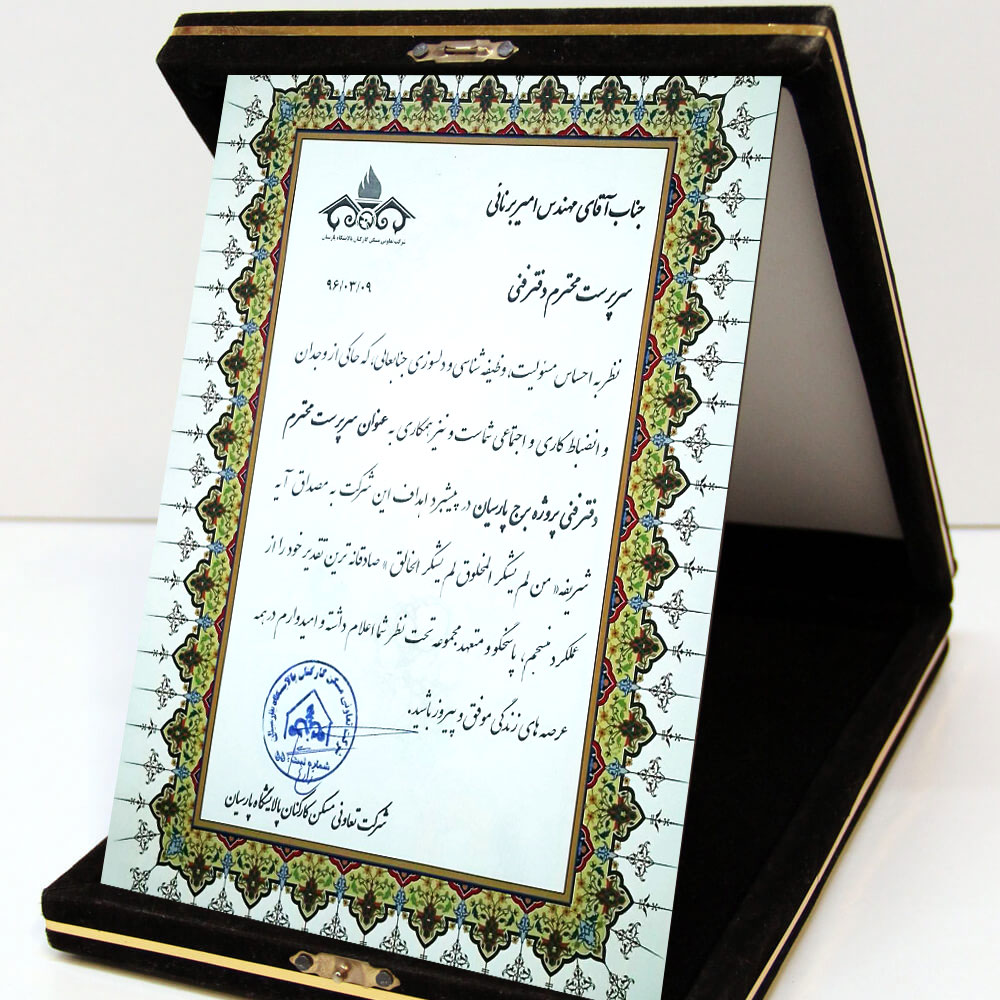 جناب آقای مهندس امیر برنائی
شرکت تعاونی مسکن کارکنان پالایشگاه پارسیان
سرپرست محترم دفتر فنی
۹۶/۰۳/۰۹
نظر به احساس مسئولیت، وظیفه شناسی و دلسوزی جنابعالی، که حاکی از وجدان
و انضباط کاری و اجتماعی شماست و نیز همکاری به عنوان سرپرست محترم
دفتر فنی پروژه برج پارسیان در پیشبرد اهداف این شرکت به مصداق آیه
شریفه « من لم یشکر المخلوق لم یشکر الخالق » صادقانه ترین تقدیر خود را از
عملکرد منسجم، پاسخگو و متعهد مجموعه تحت نظر شما اعلام داشته و امیدوارم در همه
عرصه های زندگی موفق و پیروز باشید.
شرکت تعاونی مسکن کارکنان پالایشگاه پارسیان
شماره ثبت: ۵۵
شرکت تعاونی مسکن کارکنان پالایشگاه پارسیان